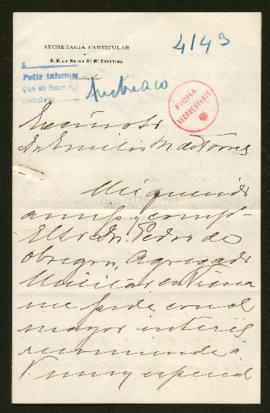 SECRETARIA PARTICULAR
DE
S. M. LA REINA Dª Mª CRISTINA
4143
Pedir informe
que se hace a
FICHA
Excmo Sr
Dn Emilio Mª de Torres
Mi querido
amigo y comp
El Sr Dn Pedro de
Obregon, Agregado
Militar en Viena
me pide con el
mayor interés
recomiende á
V muy especial